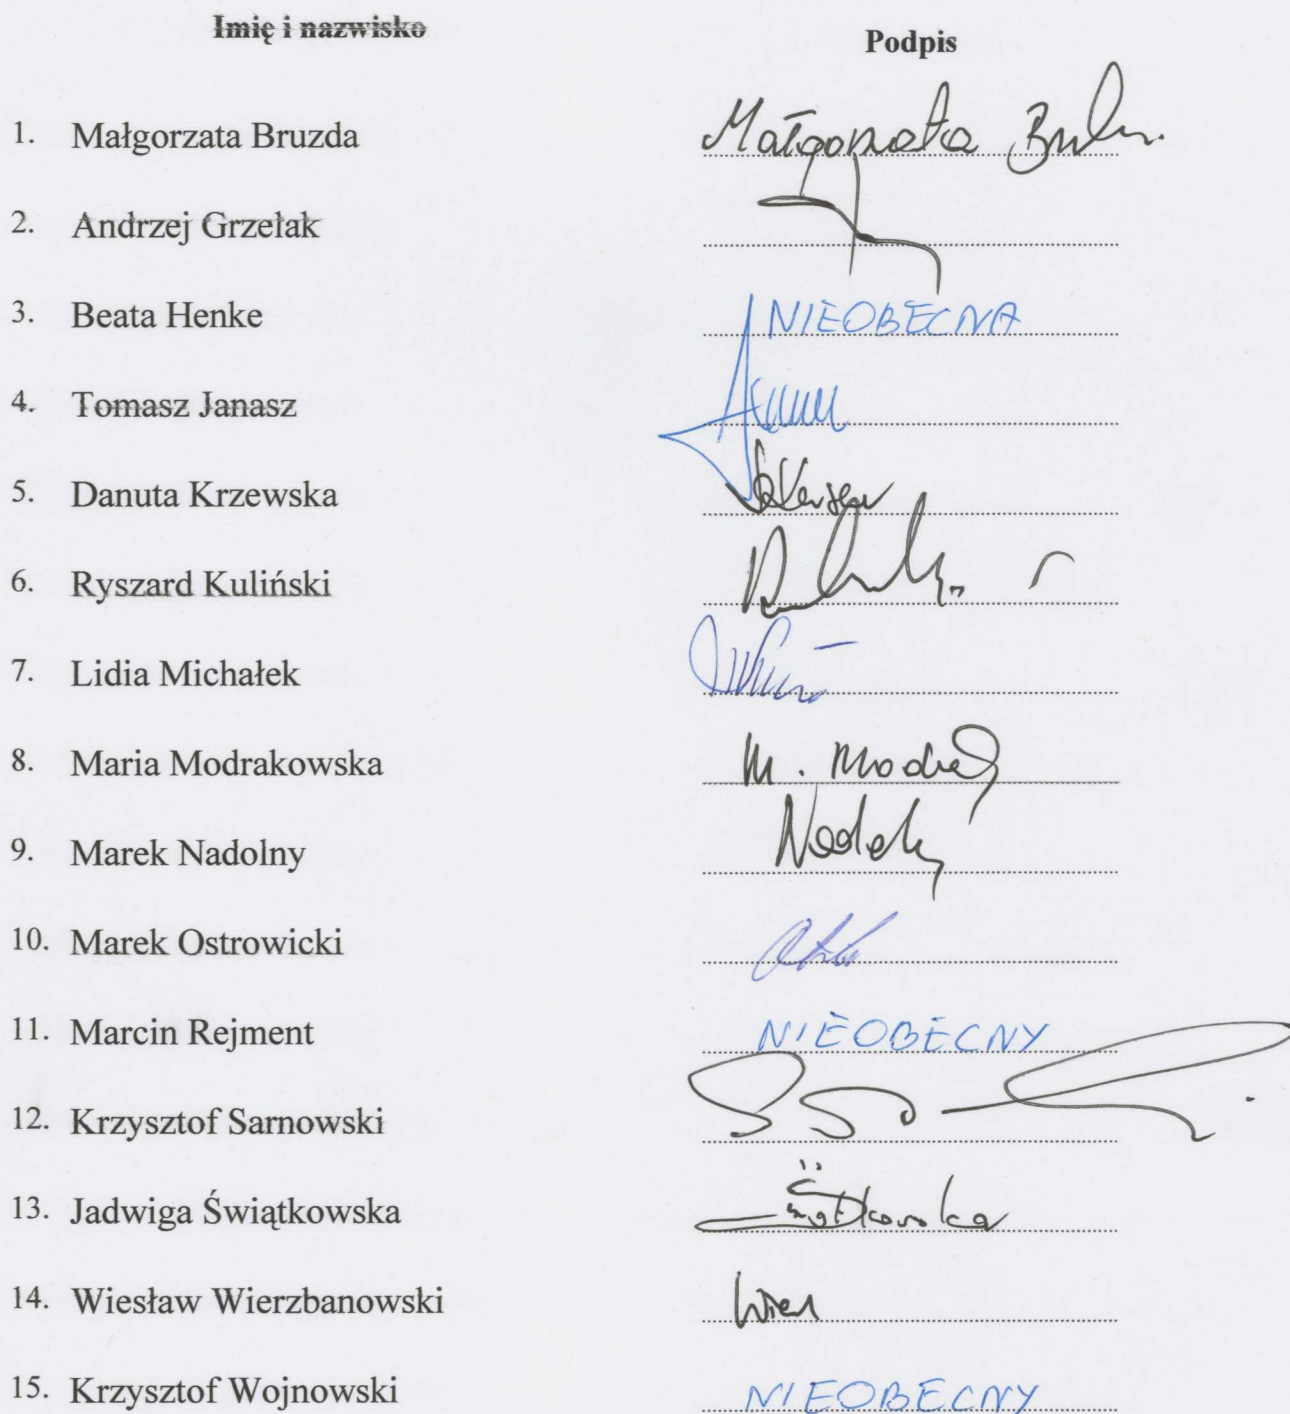 Imię i nazwisko
Podpis
1. Małgorzata Bruzda Małgorzata
2. Andrzej Grzelak
3. Beata Henke NIEOBECNA
4. Tomasz Janasz
5. Danuta Krzewska
6. Ryszard Kuliński
7. Lidia Michałek
8. Maria Modrakowska M.
9. Marek Nadolny
10. Marek Ostrowicki
11. Marcin Rejment NIEOBECNY
12. Krzysztof Sarnowski
13. Jadwiga Świątkowska
14. Wiesław Wierzbanowski
15. Krzysztof Wojnowski NIEOBECNY